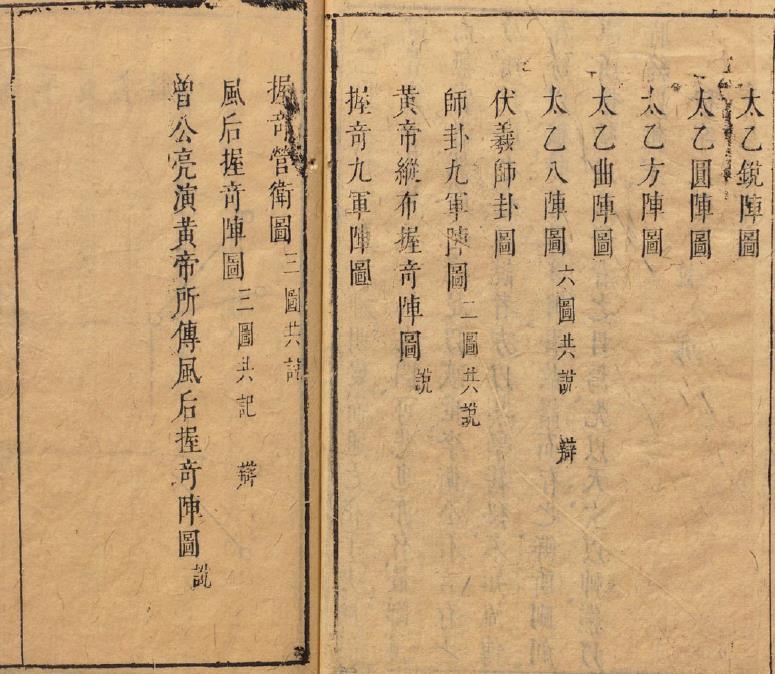 太乙銳陣圖
太乙圓陣圖
太乙方陣圖
太乙曲陣圖
太乙八陣圖 六圖共說 辯
伏羲師卦圖
師卦九軍陣圖 二圖共說
黃帝縱布握奇陣圖 說
握奇九軍陣圖
握奇營衛圖 三圖共說
風后握奇陣圖 三圖共記 辯
曾公亮演黃帝所傳風后握奇陣圖 說